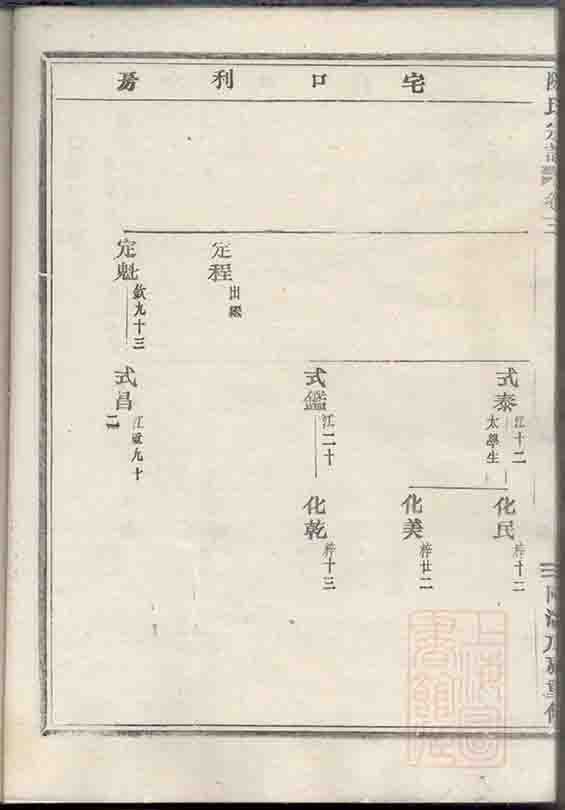 宅口利房
氏宗譜
卷三
式泰
江十二
太學生
化民
梓十二
化美
梓廿二
式鑑
江二十
化乾
梓十三
定程
出繼
定魁
欽九十三
式昌
江九十
重修
上海圖書館藏